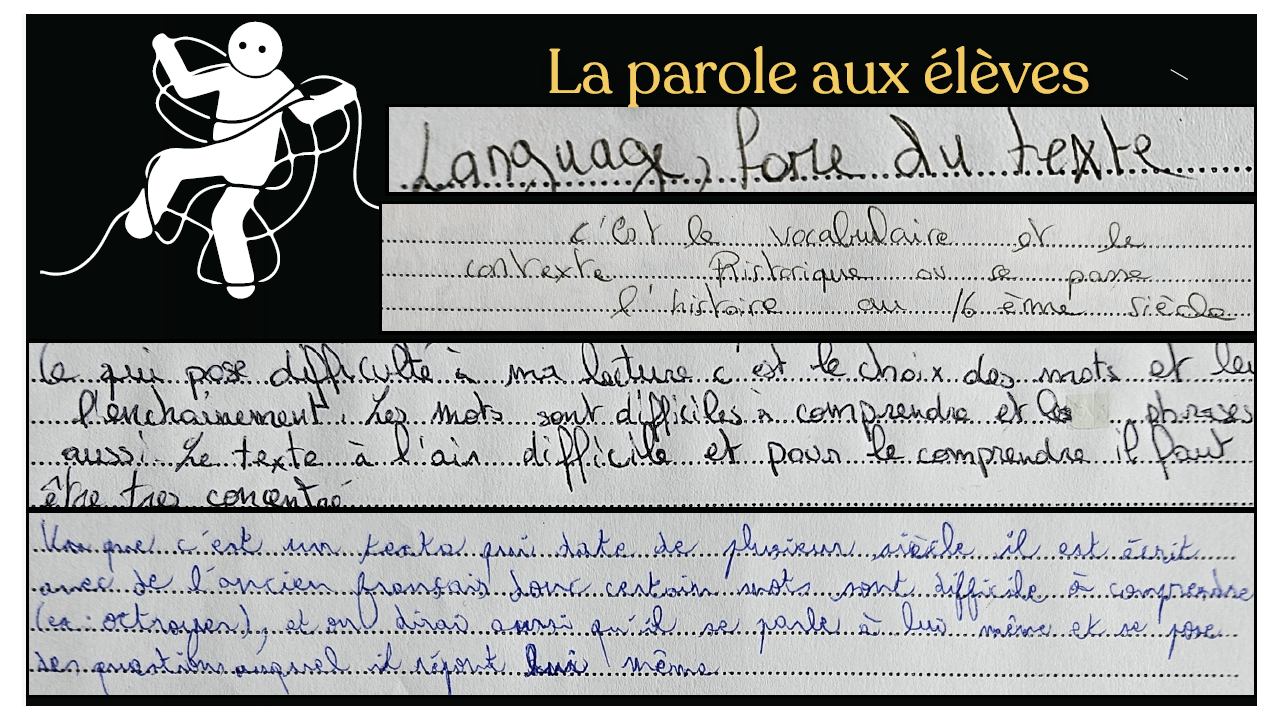 La parole aux élèves
Language, forme du texte
c'est le vocabulaire et le
contexte historique ou se passe
l'histoire au 16 ème siècle
Ce qui pose difficulté à ma lecture c'est le choix des mots et les
l'enchaînement. Les mots sont difficiles à comprendre et les phrases
aussi. Le texte à l'air difficile et pour le comprendre il faut
être tres concentré
Vu que c'est un texte qui date de plusieur siècle il est écrit
avec de l'ancien français donc certain mots sont difficile à comprendre
(ex : octroyer), et on dirai aussi qu'il se parle à lui même et se pose
des questions auquel il répont lui même